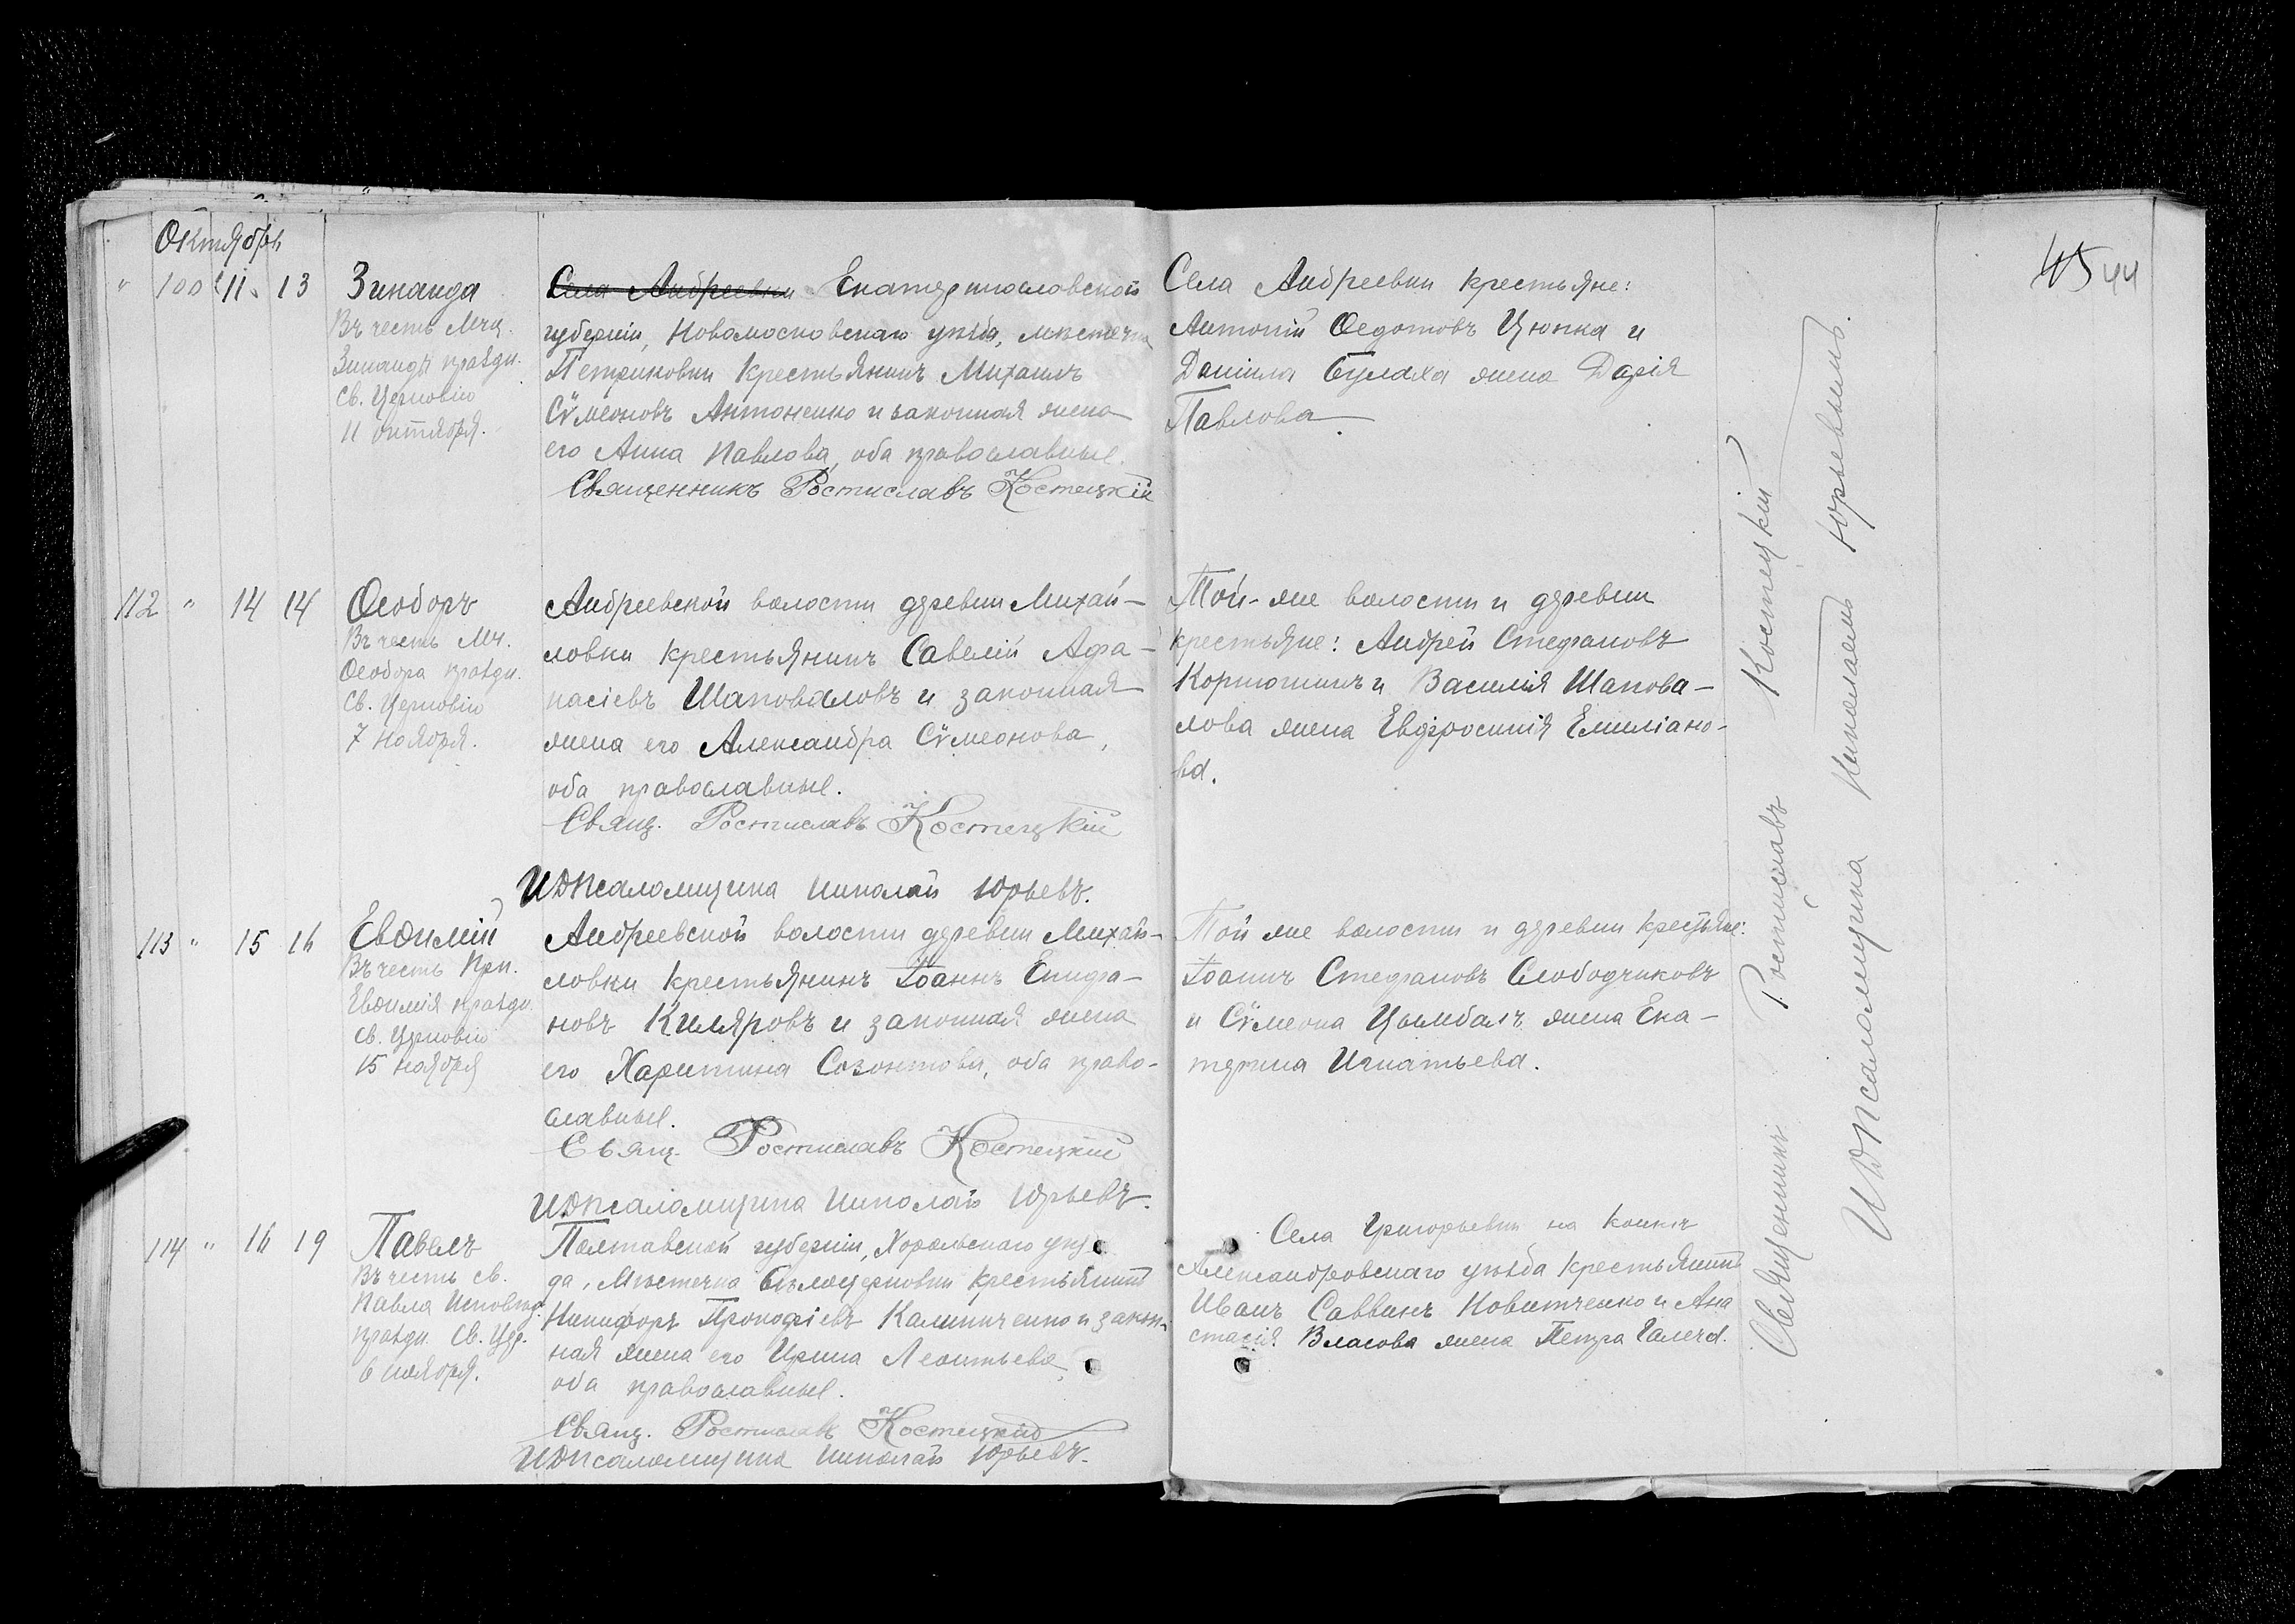 Октябрь
" 100 11 13 Зинаида
Въ честь Мчц.
Зинаиды праздн.
св. Церковію
11 октября.
Села Андреевки Екатеринославской
губерніи, Новомосковскаго уѣзда, мѣстечка
Петриковки крестьянинъ Михаилъ
Сѵмеоновъ Антоненко и законная жена
его Анна Павлова, оба православные.
Священникъ Ростиславъ Костецкій
Села Андреевки крестьяне:
Антоній Ѳедотовъ Цюпка и
Даніила Булаха жена Дарія
Павлова.
112 " 14 14 Ѳеодоръ
Въ честь Мч.
Ѳеодора праздн.
св. Церковію
7 ноября.
Андреевской волости деревни Михай-
ловки крестьянинъ Савелій Афа-
насіевъ Шаповаловъ и законная
жена его Александра Сѵмеонова,
оба православные.
Свящ. Ростиславъ Костецкій
ИД Псаломщика Николай Юрьевъ.
Той-же волости и деревни
крестьяне: Андрей Стефановъ
Кортюшинъ и Василія Шапова-
лова жена Евфросинія Емиліано-
ва.
113 " 15 16 Евѳимій
Въ честь Прп.
Евѳимія праздн.
св. Церковію
15 ноября
Андреевской волости деревни Михай-
ловки крестьянинъ Іоаннъ Епифа-
новъ Киляровъ и законная жена
его Харитина Созонтова, оба право-
славные.
Свящ. Ростиславъ Костецкій
ИД Псаломщика Николай Юрьевъ.
Той же волости и деревни крестьяне:
Іоаннъ Стефановъ Слободчиковъ
и Сѵмеона Цымбалъ жена Ека-
терина Игнатьева.
114 " 16 19 Павелъ
Въ честь св.
Павла Исповѣд.
праздн. св. Цер.
6 ноября.
Полтавской губерніи, Хорольскаго уѣз
да, Мѣстечка Бѣлоцерковки крестьянинъ
Никифоръ Прокофіевъ Калиниченко и закон-
ная жена его Ирина Леонтьева,
оба православные.
Свящ. Ростиславъ Костецкій
ИД Псаломщика Николай Юрьевъ.
Села Григорьевки на Конкѣ
Александровскаго уѣзда крестьянинъ
Иванъ Саввинъ Новитченко и Ана
стасія Власова жена Петра Галича.
Священникъ Ростиславъ Костецкій
ИД Псаломщика Николаемъ Юрьевымъ.
45 44